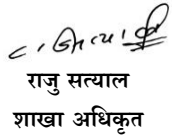 राजु सत्याल
शाखा अधिकृत